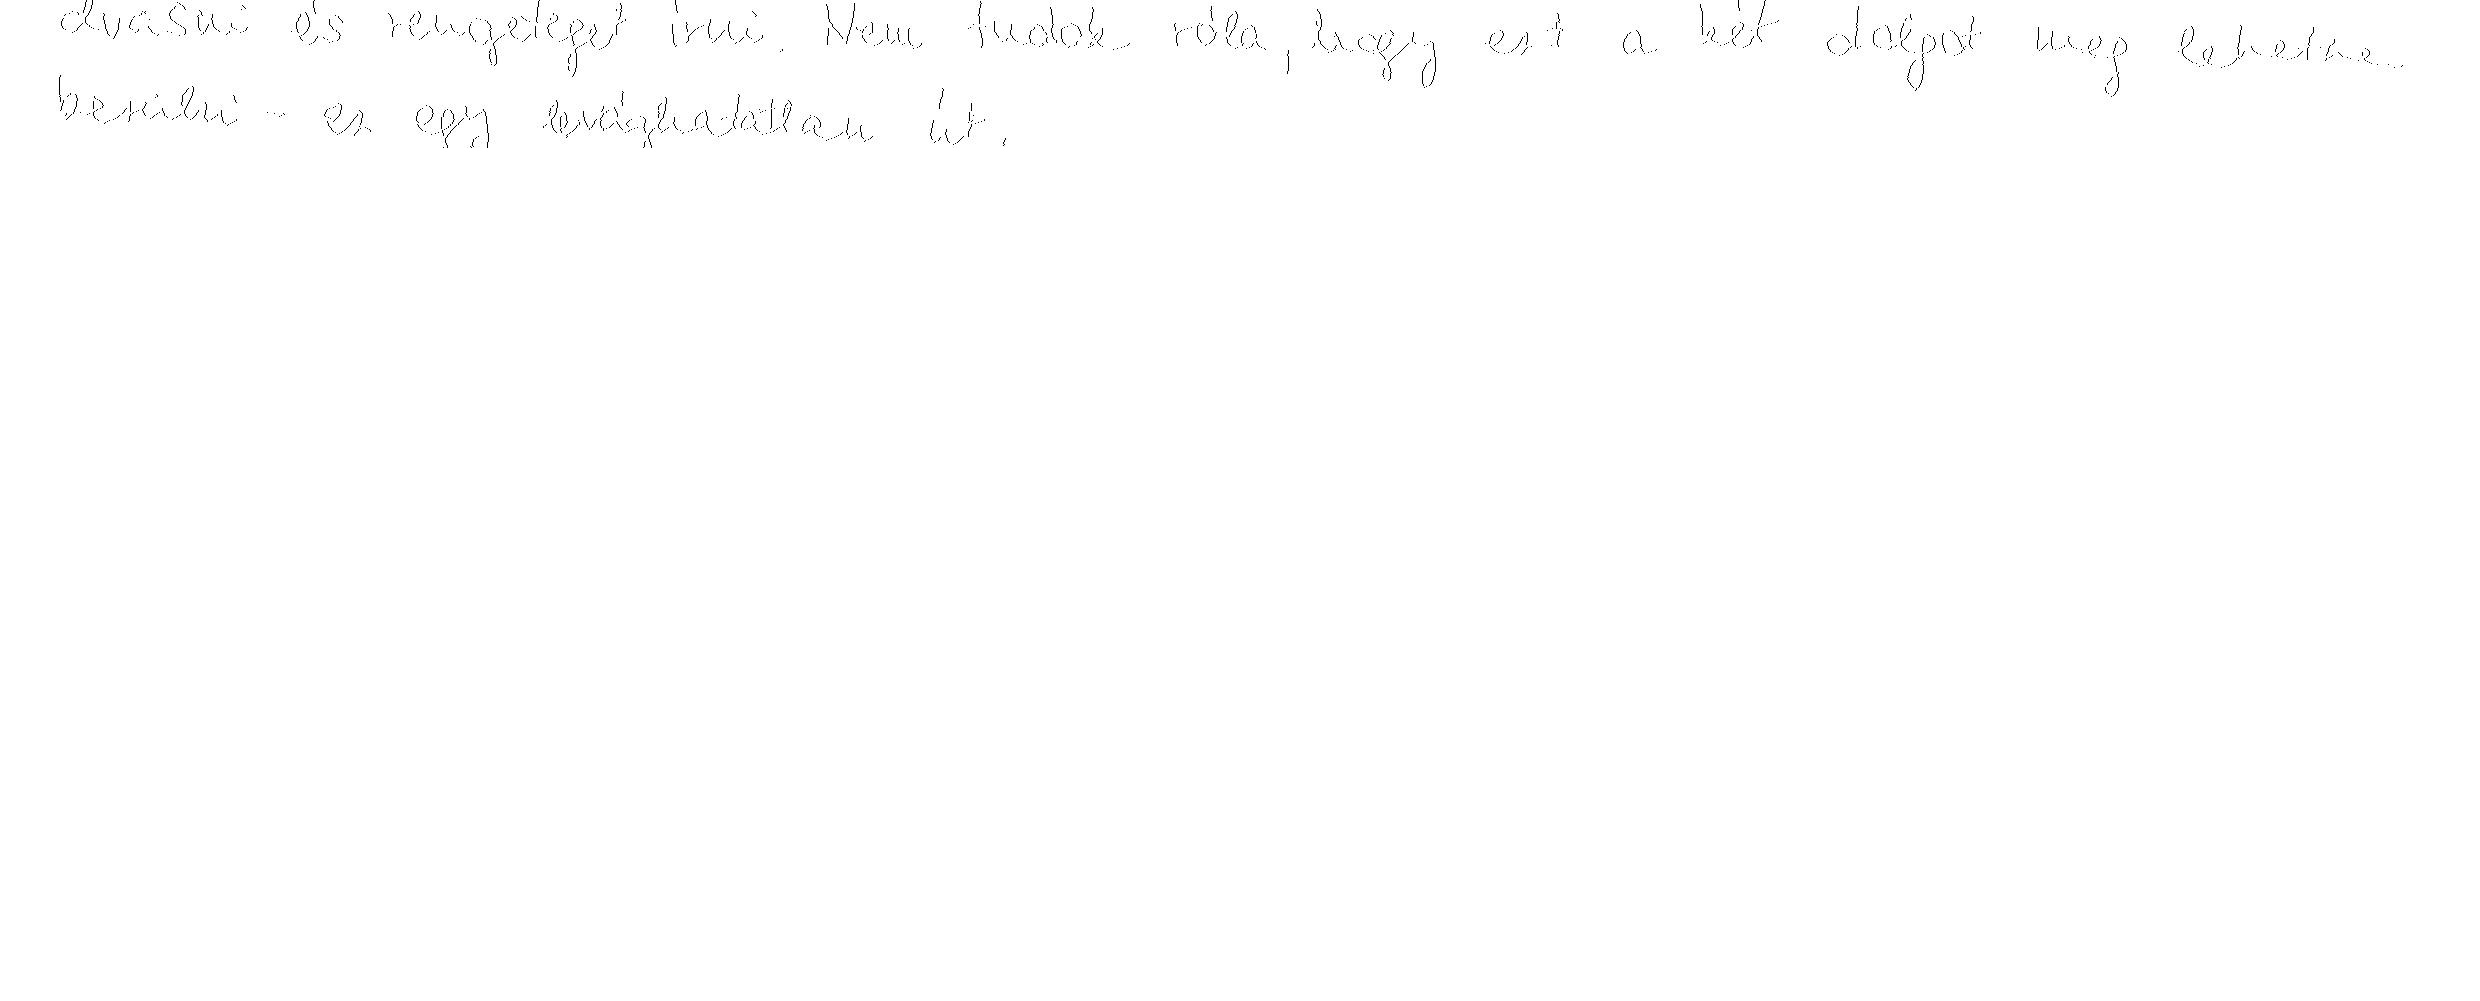 olvasni és rengeteget írni. Nem tudok róla, hogy ezt a két dolgot meg lehetne
kerülni - ez egy levághatatlan út.